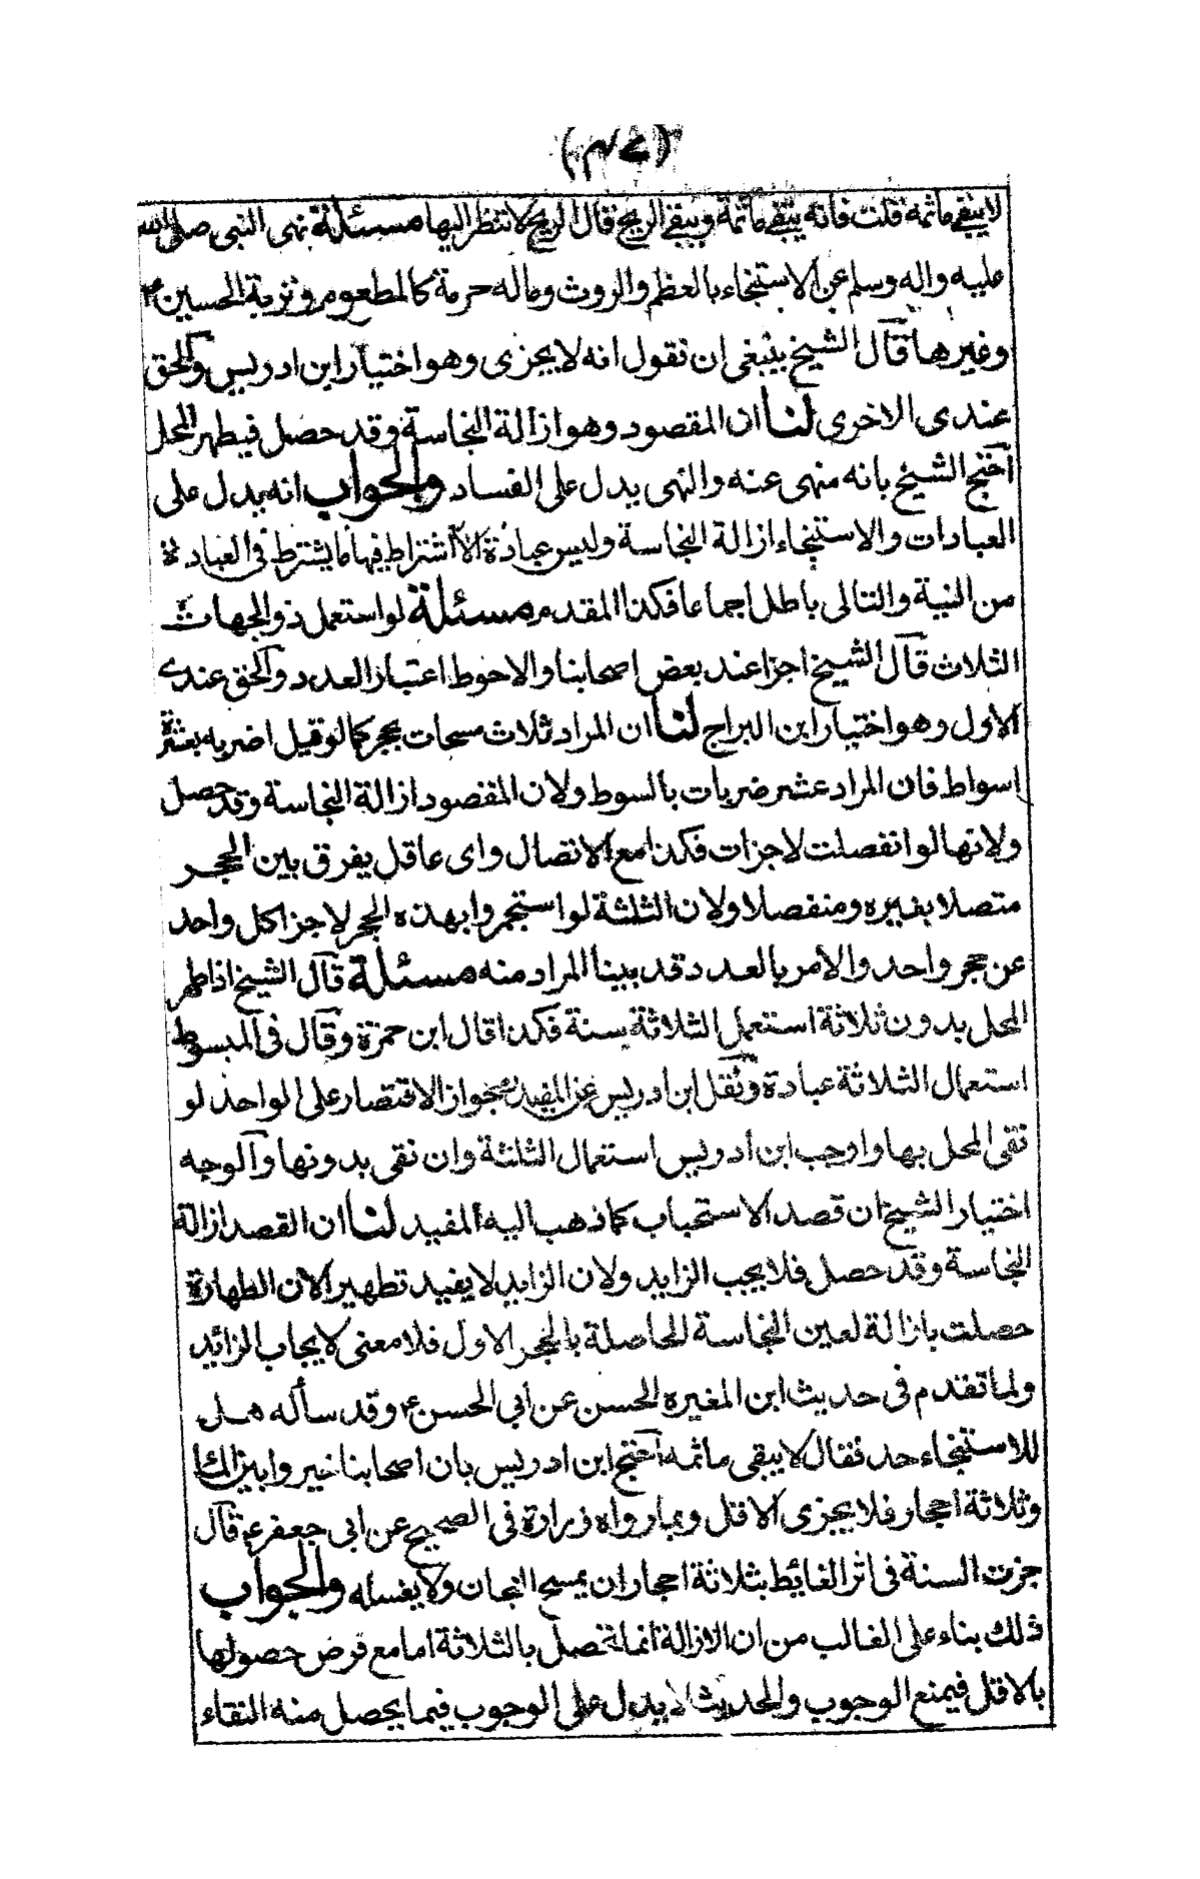 لا ينقى ما ثمه قلت فانه ينقى ما ثمة ويبقى الريح قال الريح لا ننظر اليها مسئلة نهى النبي صلى الله
عليه واله وسلم عن الاستنجاء بالعظم والروث وماله حرمة كالمطعوم وتربة الحسين ع
وغيرها قال الشيخ ينبغي ان نقول انه لا يجزى وهو اختيار ابن ادريس والحق
عندى الاخرى لنا ان المقصود وهو ازالة النجاسة وقد حصل فيطهر المحل
احتج الشيخ بانه منهى عنه والنهى يدل على الفساد والجواب انه يدل على
العبادات والاستنجاء ازالة النجاسة وليس عبادة الا اشتراط فيها ما يشترط في العبادة
من النية والتالى باطل اجماعا فكذا المقدم مسئلة لو استعمل ذو الجهات
الثلاث قال الشيخ اجزا عند بعض اصحابنا والاحوط اعتبار العدد والحق عندى
الاول وهو اختيار ابن البراج لنا ان المراد ثلاث مسحات بحجر كما لو قيل اضربه بعشرة
اسواط فان المراد عشر ضربات بالسوط ولان المقصود ازالة النجاسة وقد حصل
ولانها لو انفصلت لاجزات فكذا مع الاتصال واى عاقل يفرق بين الحجر
متصلا بغيره ومنفصلا ولان الثلثة لو استجمروا بهذه الحجر لاجزا كل واحد
عن حجر واحد والامر بالعدد قد بينا المراد منه مسئلة قال الشيخ اذا طهر
المحل بدون ثلاثة استعمل الثلاثة بسنة فكذا قال ابن حمزة وقال في المبسوط
استعمال الثلاثة عبادة ونقل ابن ادريس عن المفيد جواز الاقتصار على الواحد لو
نقى المحل بها واوجب ابن ادريس استعمال الثلثة وان نقى بدونها والوجه
اختيار الشيخ ان قصد الاستحباب كما ذهب اليه المفيد لنا ان القصد ازالة
النجاسة وقد حصل فلا يجب الزايد ولان الزايد لا يفيد تطهيرا لان الطهارة
حصلت بازالة لعين النجاسة الحاصلة بالحجر الاول فلا معنى لايجاب الزائد
ولما تقدم في حديث ابن المغيره الحسن عن أبي الحسن ع وقد سأله هل
للاستنجاء حد فقال لا يبقى ما ثمه احتج ابن ادريس بان اصحابنا خيروا بين الماء
وثلاثة احجار فلا يجزى الاقل وبما رواه زرارة في الصحيح عن ابى جعفر ع قال
جرت السنة في اثر الغايط بثلاثة احجار ان يمسح العجان ولا يغسله والجواب
ذلك بناء على الغالب من ان الازالة انما تحصل بالثلاثة اما مع فرض حصولها
بالاقل فيمنع الوجوب والحديث لا يدل على الوجوب فيما يحصل منه النقاء